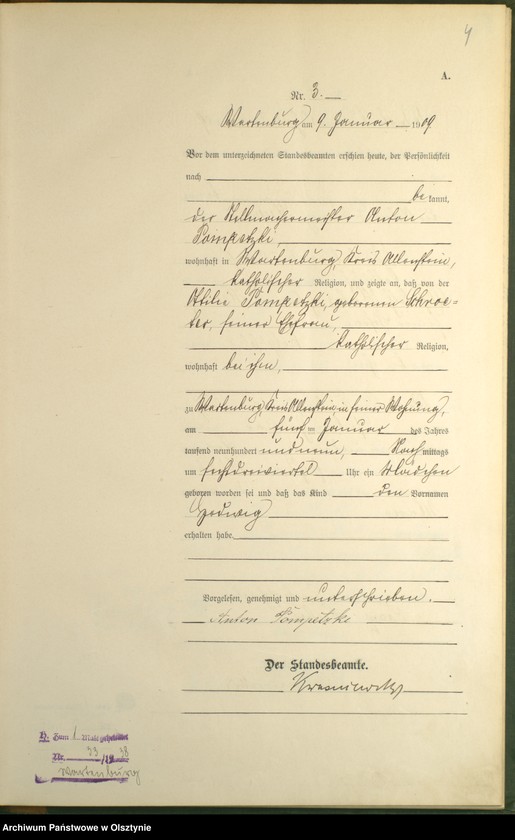 4
A.
Nr. 3.
Wartenburg am 9. Januar 1909
Vor dem unterzeichneten Standesbeamten erschien heute, der Persönlichkeit
nach
be kannt,
der Stellmachermeister Anton
Pompetzki
wohnhaft in Wartenburg, Kreis Allenstein,
katholischer Religion, und zeigte an, daß von der
Otilie Pompetzki, geborenen Schroe-
ter, seiner Ehefrau,
katholischer Religion,
wohnhaft bei ihm,
zu Wartenburg Kreis Allenstein, in seiner Wohnung,
am fünf ten Januar des Jahres
tausend neunhundert und neun, Nach mittags
um sechsdreiviertel Uhr ein Mädchen
geboren worden sei und daß das Kind den Vornamen
Hedwig
erhalten habe.
Vorgelesen, genehmigt und unterschrieben.
Anton Pompetzki
Der Standesbeamte.
H. Zum 1 Male geheiratet
Nr. 33 /19 38
Wartenburg
Archiwum Państwowe w Olsztynie